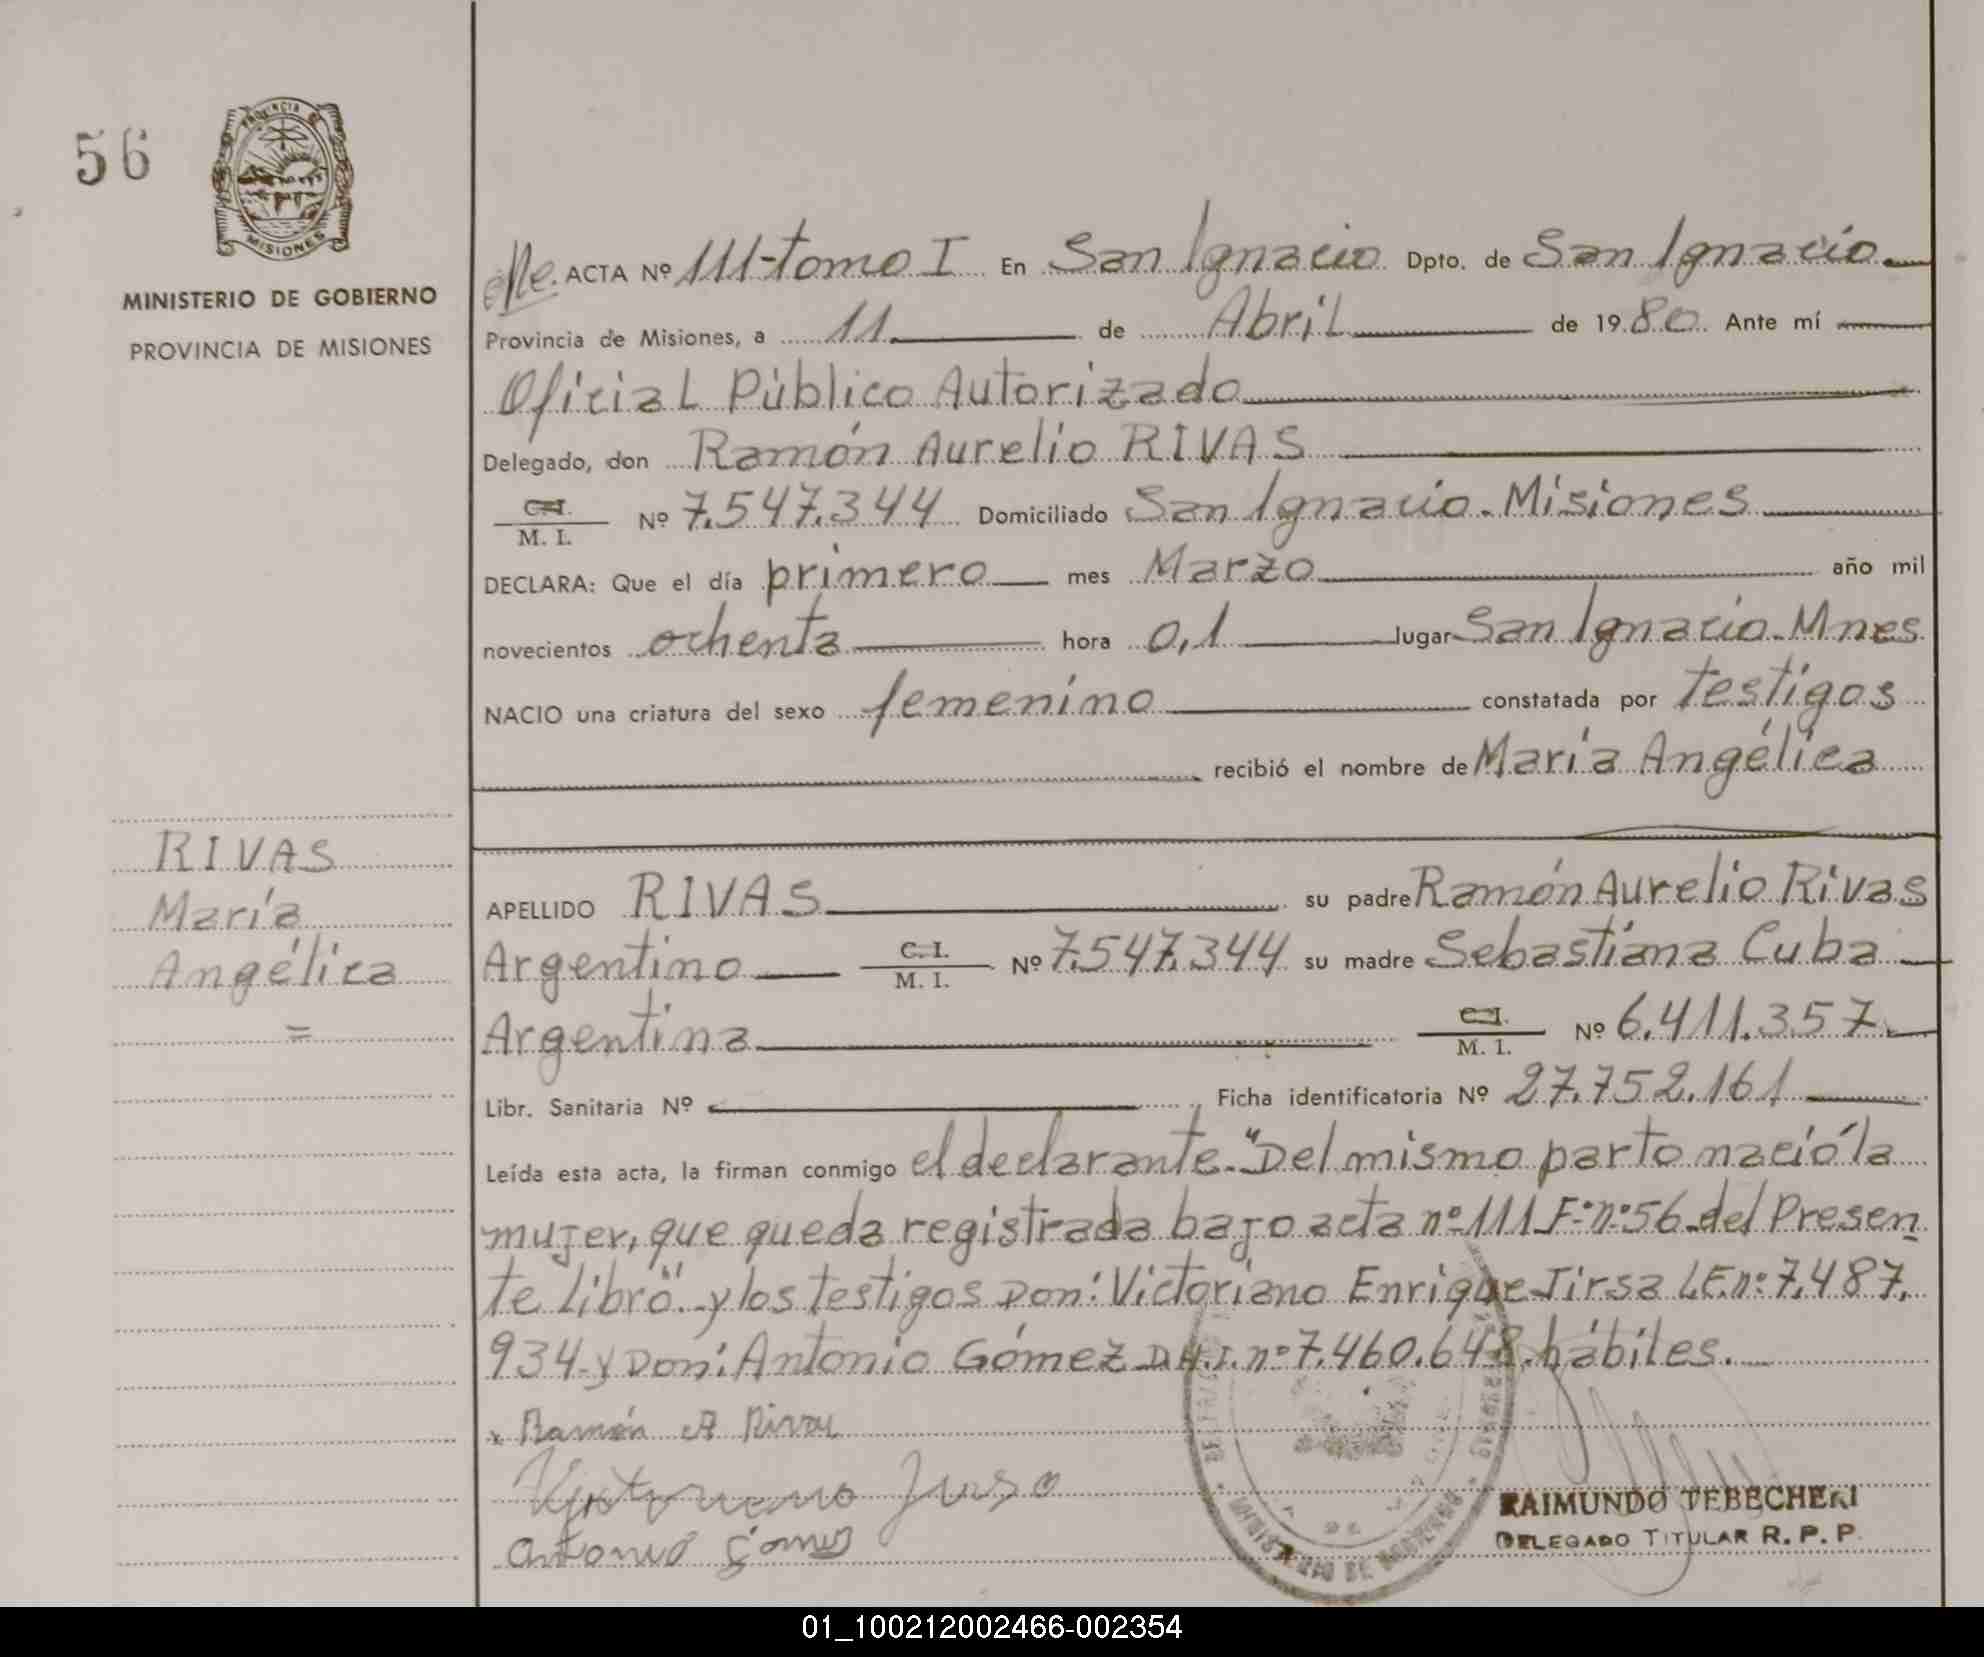 56
PROVINCIA DE
MISIONES
MINISTERIO DE GOBIERNO
PROVINCIA DE MISIONES
ACTA Nº 111-tomo I En San Ignacio Dpto. de San Ignacio.
Provincia de Misiones, a 11 de Abril de 1980. Ante mí
Oficial Público Autorizado
Delegado, don Ramón Aurelio RIVAS
C.I.
M. I. Nº 7.547.344 Domiciliado San Ignacio. Misiones
DECLARA: Que el día primero mes Marzo año mil
novecientos ochenta hora 0,1 lugar San Ignacio. Mnes
NACIO una criatura del sexo femenino constatada por testigos
recibió el nombre de María Angélica
RIVAS
María
Angélica
=
APELLIDO RIVAS su padre Ramón Aurelio Rivas
Argentino C.I.
M. I. Nº 7.547.344 su madre Sebastiana Cuba
Argentina C.I.
M. I. Nº 6.411.357.
Libr. Sanitaria Nº Ficha identificatoria Nº 27.752.161
Leída esta acta, la firman conmigo el declarante. "Del mismo parto nació la
mujer, que queda registrada bajo acta nº 111 Fº nº 56 del Presen
te libro". y los testigos Don: Victoriano Enrique Jirsa L.E. nº 7.487.
934 y Don: Antonio Gómez D.N.I. nº 7.460.648. hábiles.
x Ramón A Rivas
Antonio Gómez
MINISTERIO DE GOBIERNO
RAIMUNDO TEBECHERI
DELEGADO TITULAR R. P. P.
01_100212002466-002354